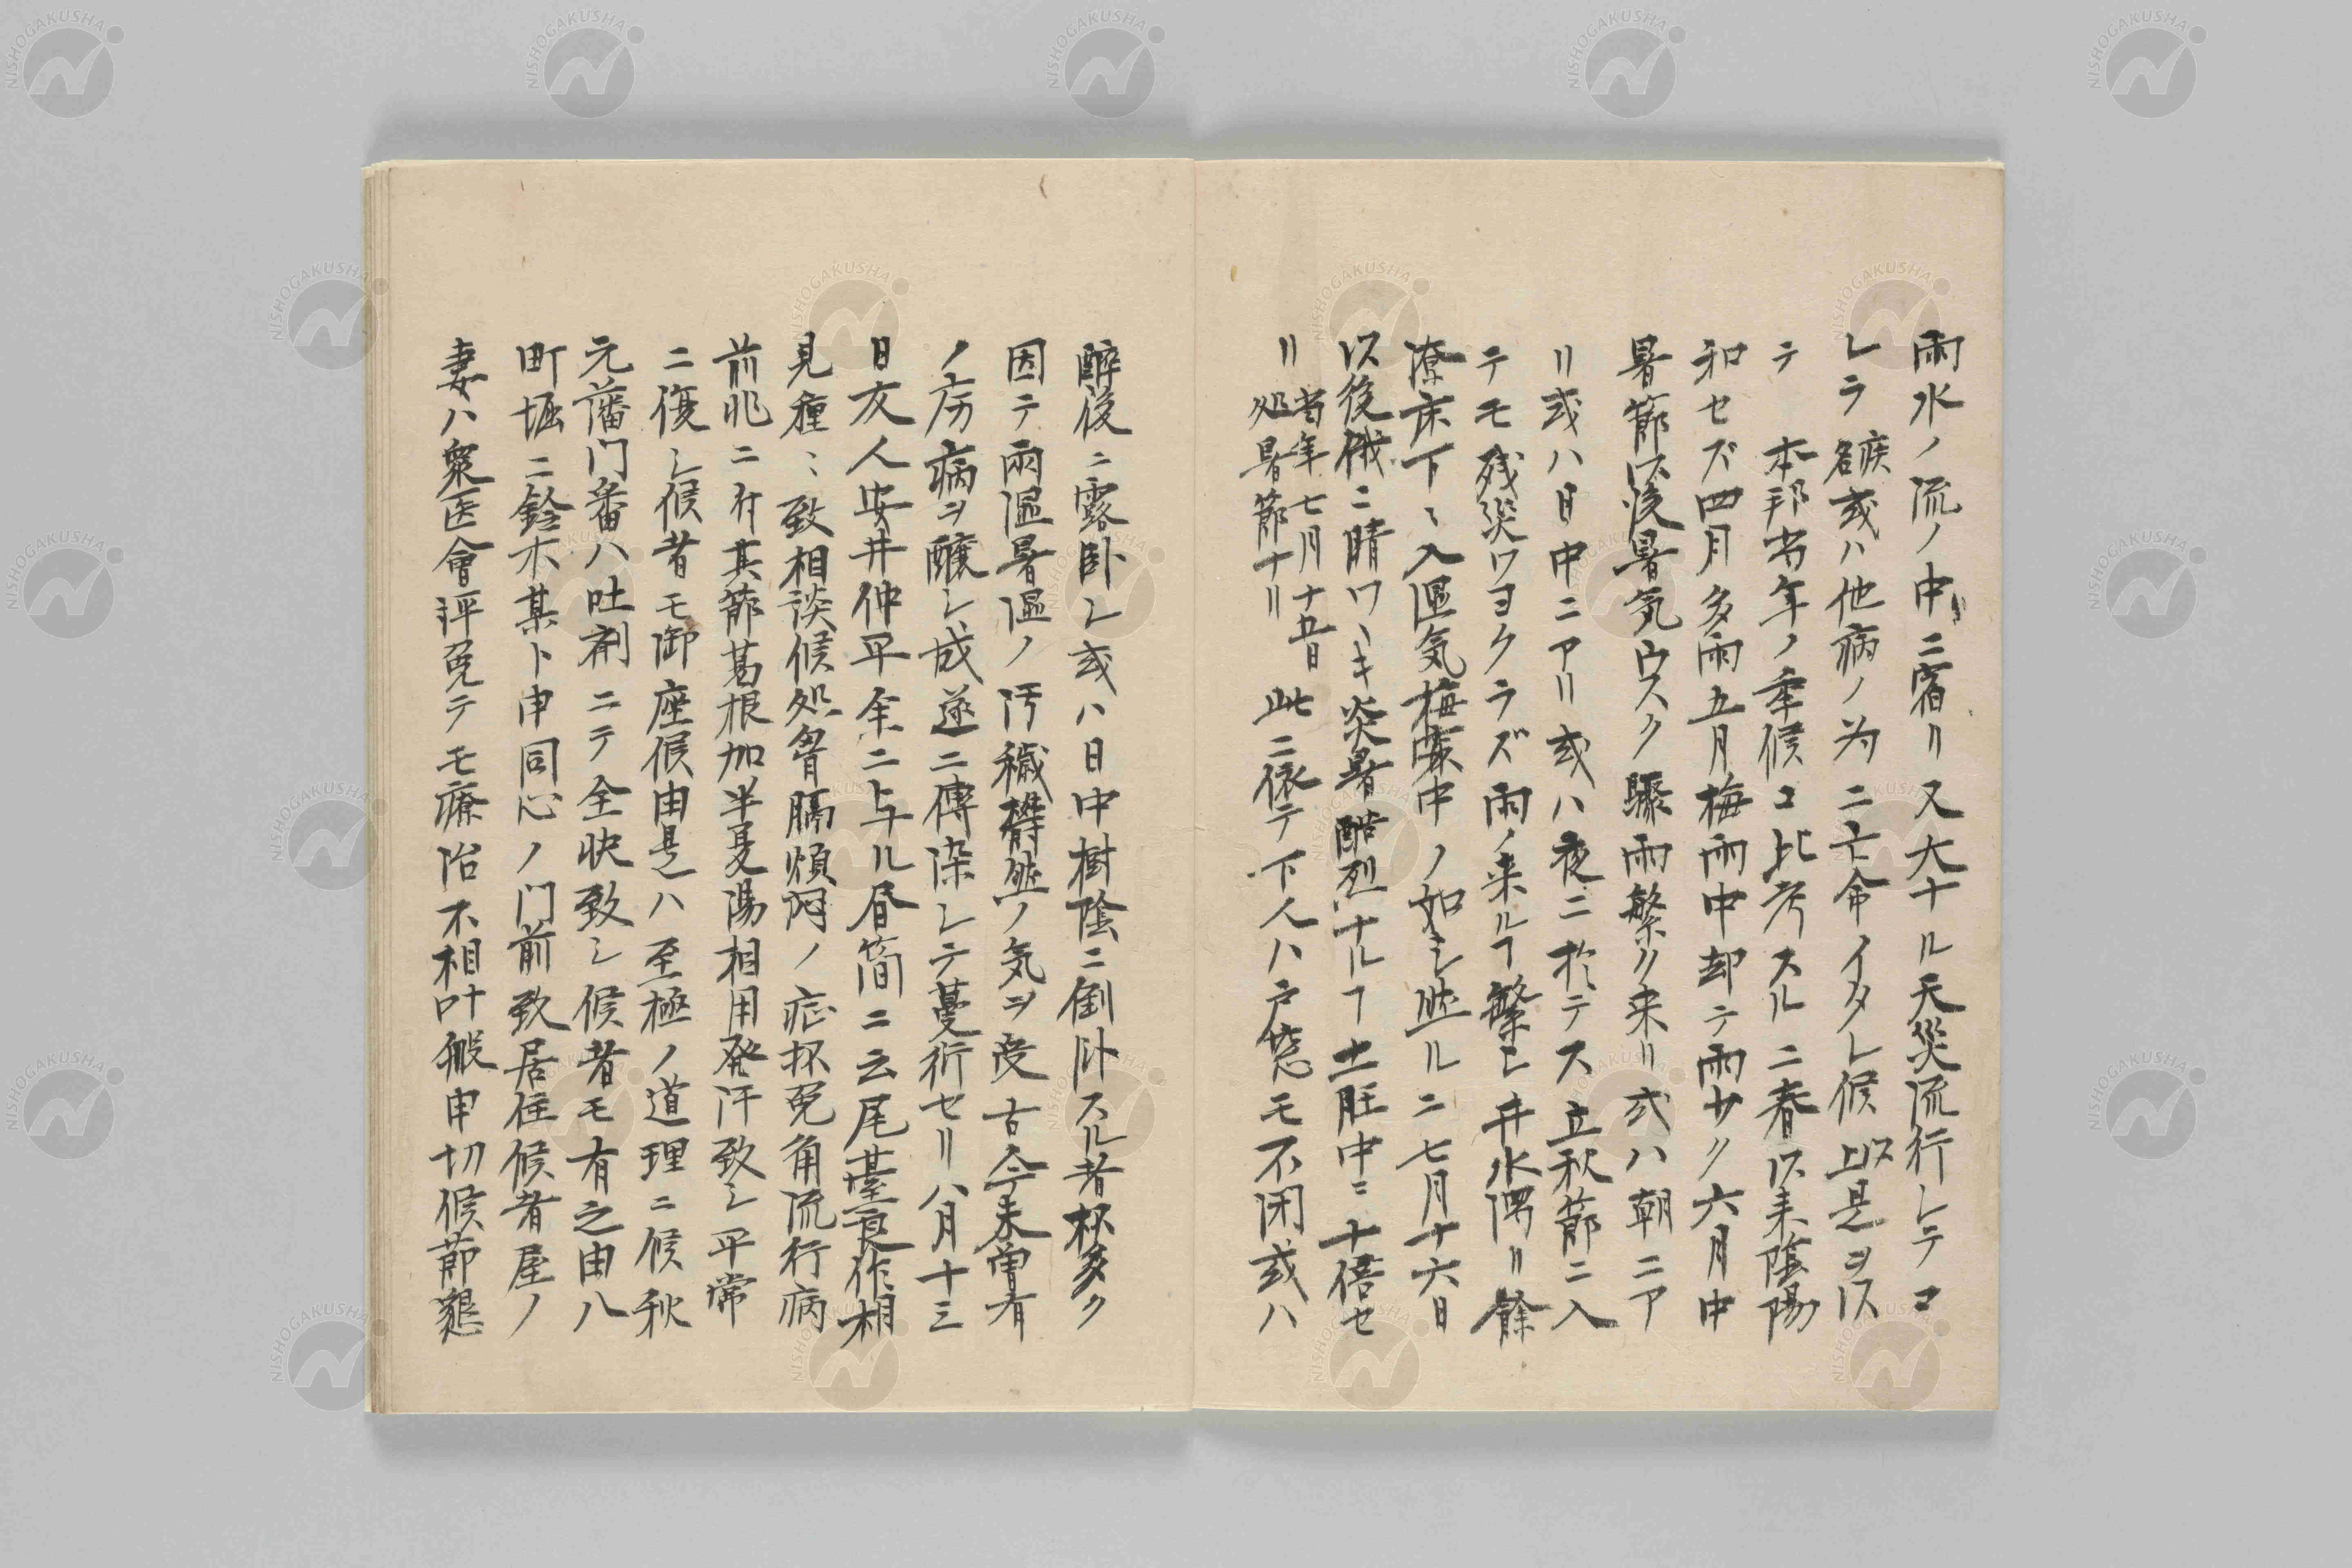 雨水ノ流ノ中ニ宿リ又大ナル天災流行シテコ
レラ疾名或ハ他病ノ為ニ亡命イタシ候 以上是ヲ以
テ 本邦当年ノ季候コ比考スルニ春以来陰陽
和セズ四月多雨五月梅雨中却テ雨少ク六月中
暑節以後暑気ウスク驟雨繁ク来リ或ハ朝ニア
リ或ハ日中ニアリ或ハ夜ニ於テス立秋節ニ入
テモ残災ツヨクラズ雨ノ来ルヿ繁ク井水溥リ餘
潦床下ニ入温気梅霖中ノ如シ然ルニ七月十六日
以後俄ニ晴ツヽキ炎暑酷烈ナルヿ土旺中ニ十倍セ
リ 当年七月十五日処暑節ナリ 此ニ依テ下人ハ戸窓モ不閉或ハ
醉後ニ露臥シ或ハ日中樹陰ニ倒臥スル者抔多ク
因テ雨湿暑湿ノ汚穢欝然ノ気ヲ受古今未曽有
ノ疠病ヲ醸シ成遂ニ傳染シテ蔓衍セリ八月十三
日友人安井仲平余ニ与ル昼簡ニ云尾䑓良作相
見種々致相談候処胷膈煩悶ノ症抔免角流行病
前兆ニ付其節葛根加半夏湯相用発汗致シ平常
ニ復シ候者モ御座候由是ハ至極ノ道理ニ候秋
元藩門番ハ吐剤ニテ全快致シ候者モ有之由八
町堀ニ鈴木某ト申同心ノ門前致居住候者屋ノ
妻ハ衆医會評免テモ療治不相叶搬申切候節懇